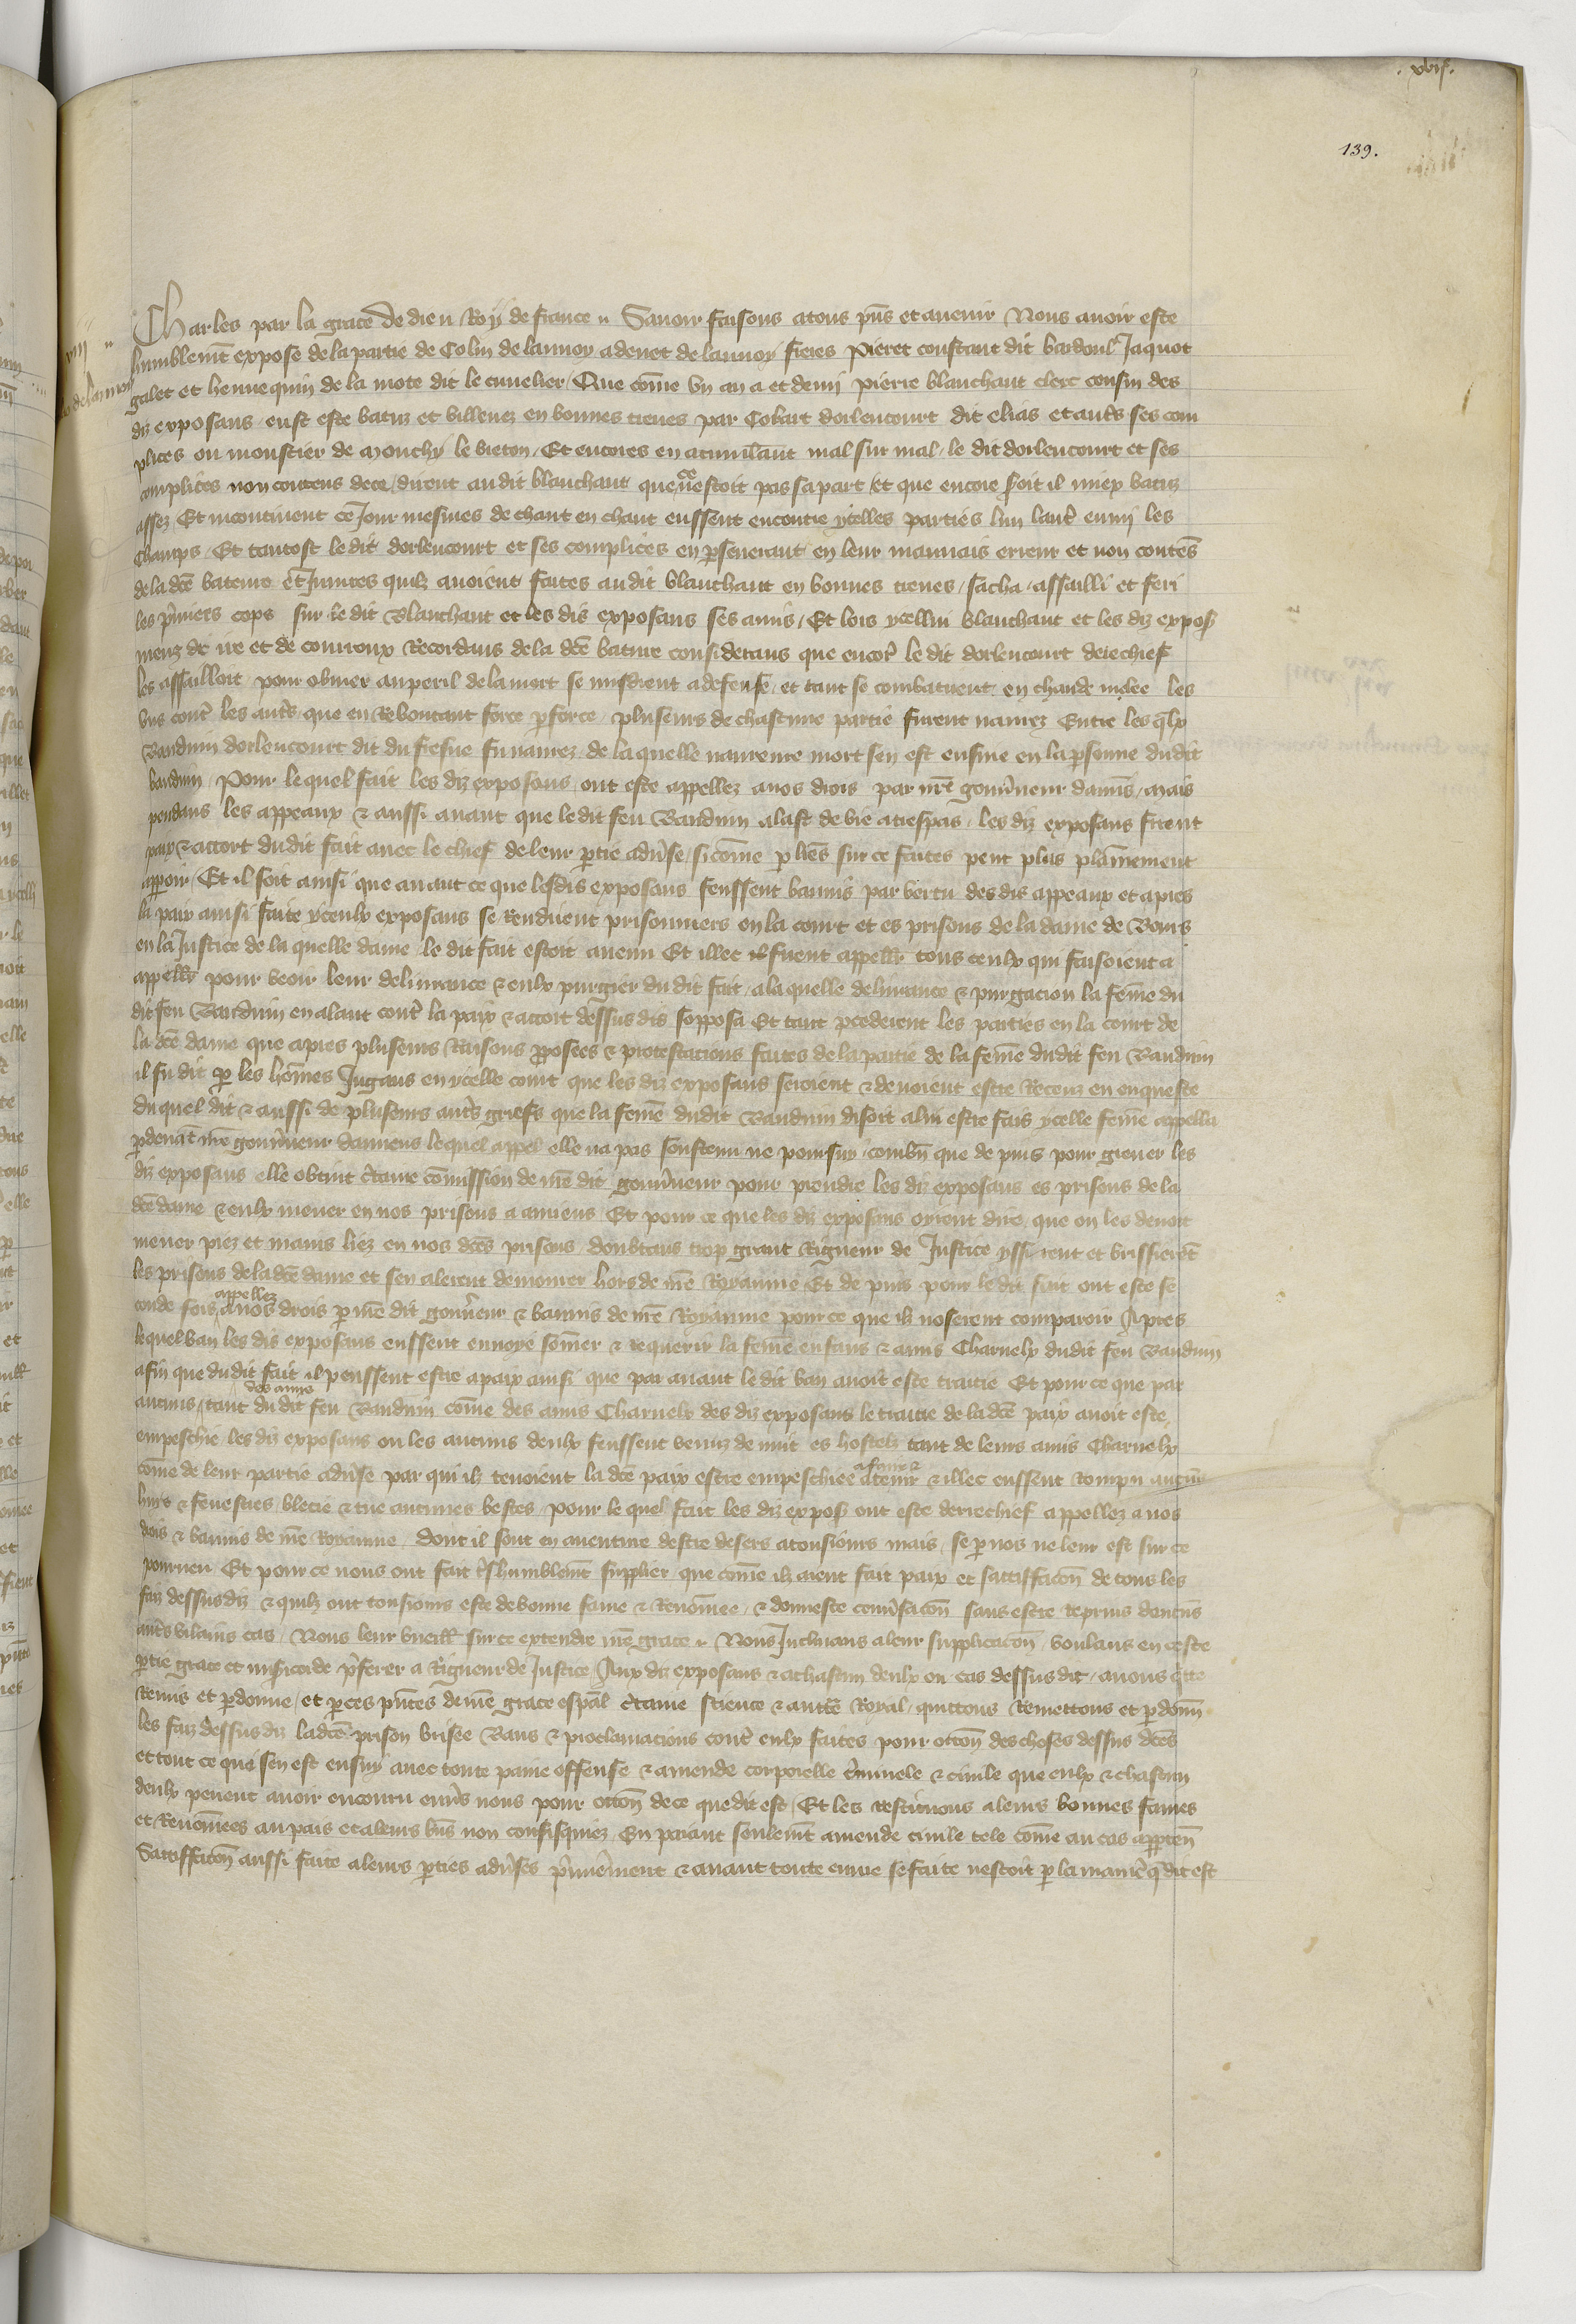 . xvii.
139.
Charles par la grace de dieu Roy de france .. Savoir faisons a tous pñs et avenir Nous avoir este
humblemẽt expose de la partie de Colin de lannoy adenet de lannoy freres Pieret constant dit bardoul Jaquot
galet et hennequin de la mote dit le cuvelier / Que cõme un an a et demi pierre blanchart clerc cousin des
diz exposans eust este batuz et villenez en bonnes trieves par Cobart dorlencourt dit elias et autrs ses com
plices ou moustier de monchy le breton / Et encores en acumulant mal sur mal le dit dorlencourt et ses
complices non contens de ce / dirent au dit blanchart que ce nestoit pas sa part et que encore soit il miex batuz
assez Et incontinent ce Jour mesmes de chant en chant eussent encontre ycelles parties lun lautr enmi les
champs / Et tantost le dit dorlencourt et ses complices en pseverant en leur mauvais erreur et non contẽs
de la dcẽ bateure et Injures quilz avoient faites au dit blanchart en bonnes trieves / sacha / assailli et feri
les pmiers cops sur le dit Blanchart et les dis exposans ses amis / Et lors ycellui blanchart et les diz expos
meuz de ire et de courroux Recordans de la dcẽ bature considerans que encor le dit dorlencourt derechief
les assailloit pour obvier au peril de la mort se misdrent a defense / et tant se combatirent en chaude melee les
uns contr les autrs que en Reboutant force p force / pluseurs de chascune partie furent navrez Entre les qlx
Bauduin dorlencourt dit du fresne fu navrez de la quelle navreure mort sen est ensuie en la psonne dudit
bauduin / Pour lequel fait les diz exposans ont este appellez a nos drois par nrẽ gouvneur damiẽs / mais
pendans les appeaux & aussi avant que le dit feu Bauduin alast de vie a trespas / les diz exposans firent
paix & accort dudit fait avec le chief de leur ptie advse / si cõme p lrẽs sur ce faites peut plus plainement
apparoir / Et il soit ainsi que avant ce que lesdis exposans feussent bannis par vertu des dis appeaux et apres
la paix ainsi faite yceulx exposans se rendirent prisonniers en la court et es prisons de la dame de Bours
en la Justice de la quelle dame le dit fait estoit avenu Et illec il furent appellr tous ceulx qui faisoient a
appellr pour veoir leur delivrance & eulx purgier du dit fait / a la quelle delivrance & purgacion la femẽ du
dit feu Bauduin en alant contr la paix & accort dessus dis sopposa Et tant pcederent les parties en la court de
la dcẽ dame que apres pluseurs Raisons pposees & protestacions faites de la partie de la femẽ dudit feu Bauduin
il fu dit p les homẽs Jugans en ycelle court que les diz exposans seroient & devoient estre Receuz en enqueste
du quel dit & aussi de pluseurs autrs griefs que la femẽ dudit Bauduin disoit a lui estre fais ycelle femẽ appella
pdevant nrẽ gouvneur damiens lequel appel elle na pas soustenu ne poursuy / combñ que de puis pour grever les
diz exposans elle obtint ctaine comission de nrẽ dit gouvneur pour prendre les diz exposans es prisons de la
dcẽ dame & eulx mener en nos prisons a amiens Et pour ce que les diz exposans oyrent dire que on les devoit
mener piez et mains liez en nos dcẽs prisons doubtans trop grant Rigueur de Justice yssirent et brissierẽt
les prisons de la dcẽ dame et sen alerent demourer hors de nrẽ Royaume Et de puis pour le dit fait ont este se
conde fois appellez a nos drois p nrẽ dit gouvneur & bannis de nrẽ Royaume pour ce que ilz noserent comparoir Apres
lequel ban les dis exposans eussent envoye somer & requerir la femẽ enfans & amis Charnelx dudit feu Bauduin
afin que dudit fait il peussent estre a paix ainsi que par avant le dit ban avoit este traitie Et pour ce que par
aucuns des amis tant dudit feu Bauduin cõme des amis Charnelx des diz exposans le traitie de la dcẽ paix avoit este
empeschie les diz exposans ou les aucuns deulx feussent venuz de nuit es hostelx tant de leurs amis Charnelx
cõme de leur partie advse par qui ilz tenoient la dcẽ paix estre empeschiee a faire & a tenir & illec eussent Rompu aucuns
huis & fenestres blecie & tue aucunes bestes / pour le quel fait les diz expos ont este derechief appellez a nos
drois & bannis de nrẽ Royaume / dont il sont en aventure destre desers a tousiours mais / se p nos ne leur est sur ce
pourveu Et pour ce nous ont fait trs humblemẽt supplier que cõme ilz aient fait paix et satiffacõn de tous les
faiz dessusdiz & quilz ont tousiours este de bonne fame & Renõmee / & donneste convsacõn sans estre reprins daucũs
autrs vilains cas / Nous leur vueillr sur ce extendre nrẽ grace .. Nous Inclinans a leur supplicacõn / voulans en ceste
ptie grace et misicorde pferer a Rigueur de Justice / Aux diz exposans & a chascun deulx ou cas dessus dit / avons qtte
Remis et pdonne / et p ces pñtes de nrẽ grace espãl ctaine science & auctẽ Royal / quittons Remettons et pdonñ
les faiz dessus diz la dcẽ prison brisee Bans & proclamacions contr eulx faites pour occõn des choses dessus dcẽs
et tout ce que sen est ensuy avec toute paine offense & amende corporelle criminele & civile que eulx & chascun
deulx pevent avoir encouru envs nous pour occõn de ce que dit est / Et les restituons a leurs bonnes fames
et Renõmees au pais et a leurs bñs non confisquiez / En paiant seulemẽt amende civile tele cõme au cas apptenr̃
Satiffacõn aussi faite a leurs pties advses pmierement & avant toute euvre se faite nestoit p la manier̃ q dit est